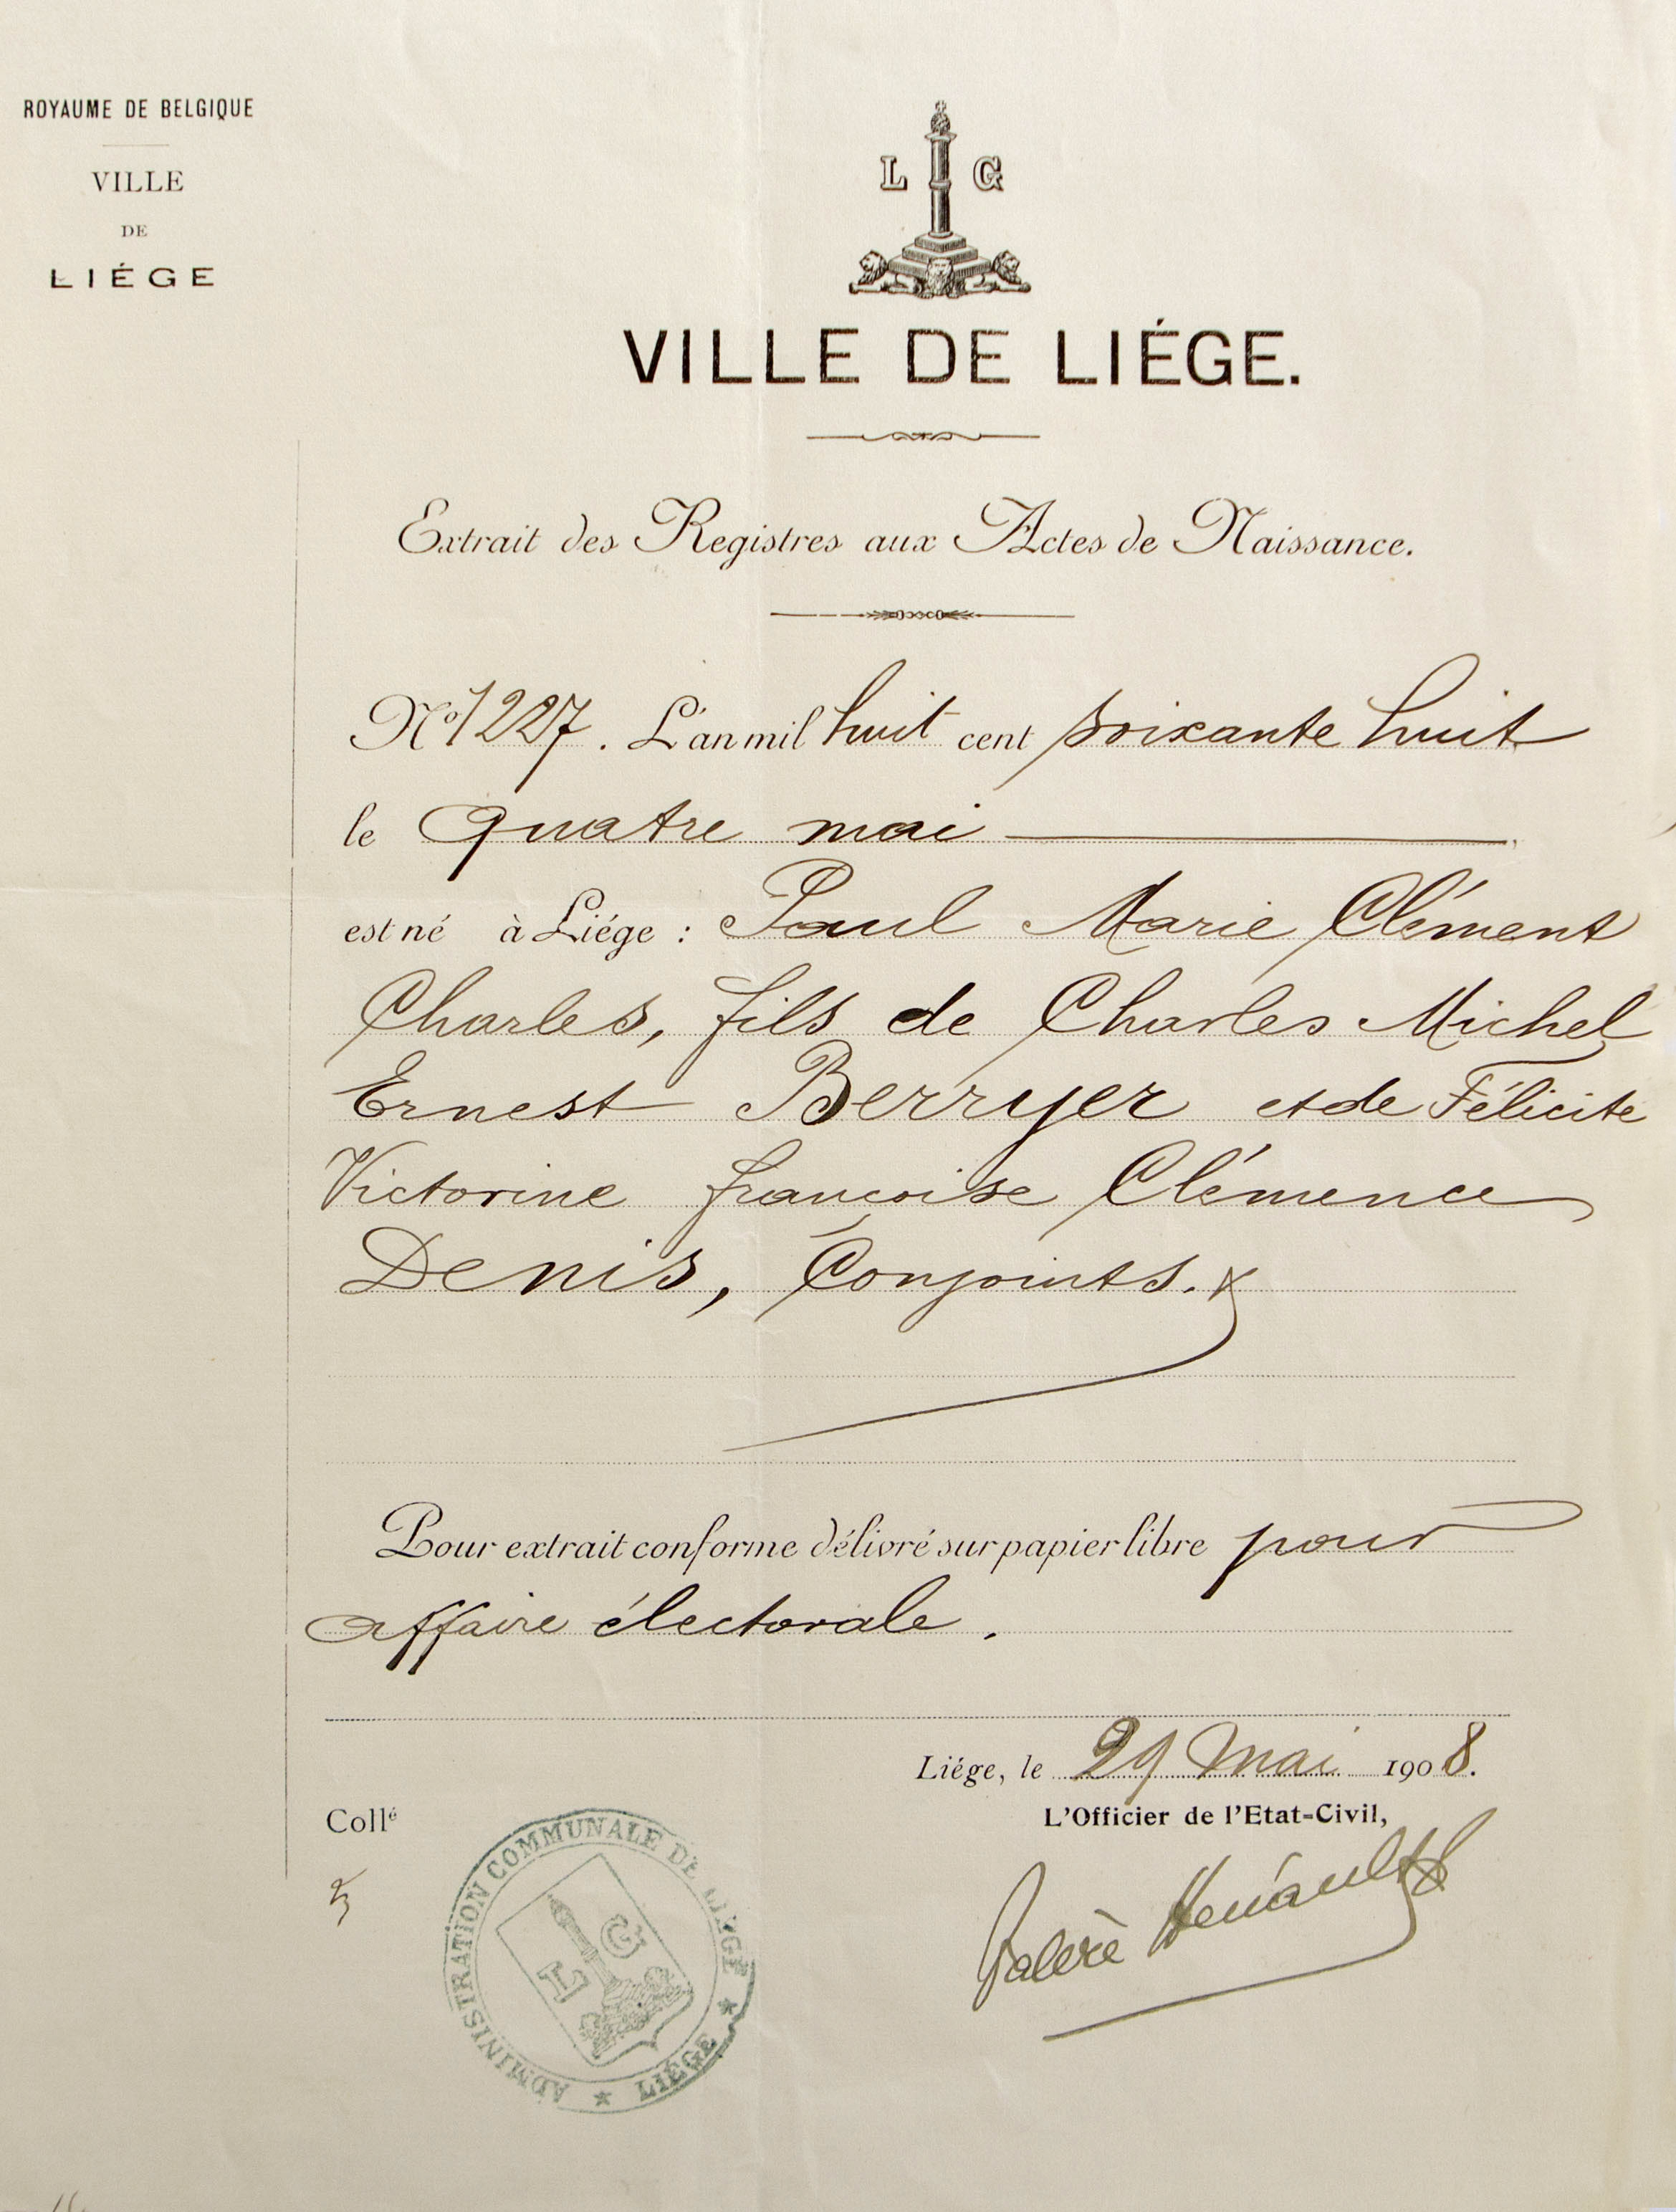 ROYAUME DE BELGIQUE
VILLE
DE
LIÉGE
L G
VILLE DE LIÉGE.
Extrait des Registres aux Actes de Naissance.
No 1227. L'an mil huit cent soixante huit
le quatre mai
est né à Liége : Paul Marie Clément
Charles, fils de Charles Michel
Ernest Berryer et de Félicité
Victorine françoise Clémence
Denis, Conjoints.
Pour extrait conforme délivré sur papier libre pour
affaire électorale.
Liége, le 29 Mai 1908.
L'Officier de l'Etat-Civil,
Collé
Valère Hénault
ADMINISTRATION COMMUNALE DE LIÉGE
L G
* LIÉGE *